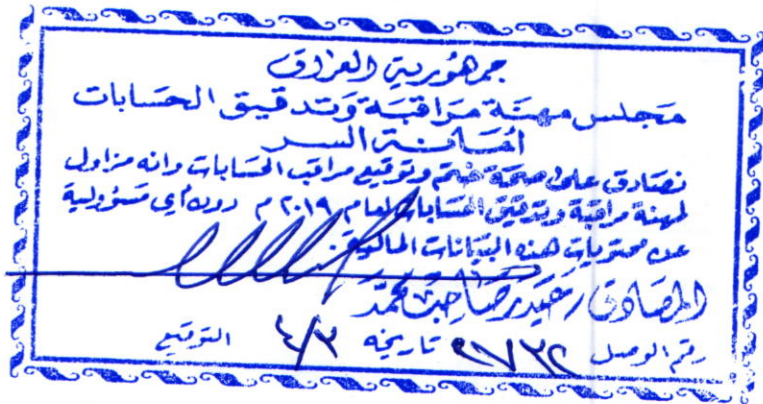 جمهورية العراق
مجلس مهنة مراقبة وتدقيق الحسابات
أمانة السر
نصادق على صحة ختم وتوقيع مراقب الحسابات وانه مزاول
لمهنة مراقبة وتدقيق الحسابات لعام ٢٠١٩ م دون أي مسؤولية
عن محتويات هذه البيانات المالية.
المصادق / حيدر صاحب محمد
رقم الوصل تاريخه ٤/٣ التوقيع